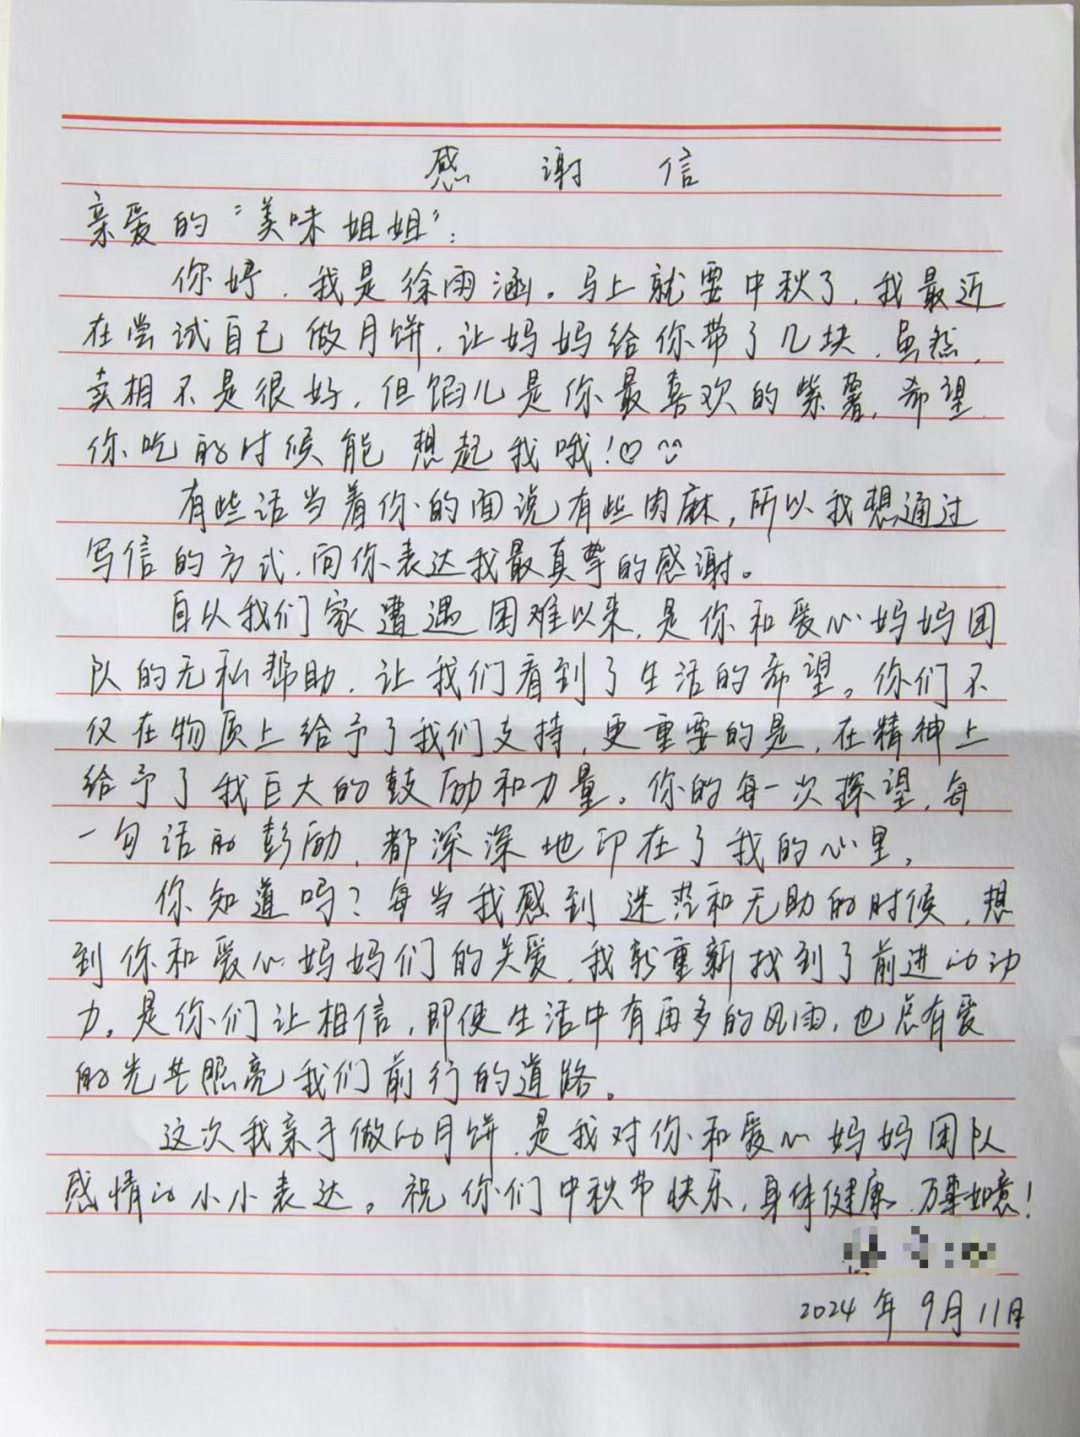 感 谢 信
亲爱的“美味姐姐”：
你好，我是徐雨涵。马上就要中秋了，我最近
在尝试自己做月饼，让妈妈给你带了几块，虽然，
卖相不是很好，但馅儿是你最喜欢的紫薯，希望
你吃的时候能想起我哦！♡
有些话当着你的面说有些肉麻，所以我想通过
写信的方式，向你表达我最真挚的感谢。
自从我们家遭遇困难以来，是你和爱心妈妈团
队的无私帮助，让我们看到了生活的希望。你们不
仅在物质上给予了我们支持，更重要的是，在精神上
给予了我巨大的鼓励和力量。你的每一次探望，每
一句话的彭励，都深深地印在了我的心里。
你知道吗？每当我感到迷茫和无助的时候，想
到你和爱心妈妈们的关爱，我就重新找到了前进的动
力。是你们让相信，即使生活中有再多的风雨，也总有爱
的光芒照亮我们前行的道路。
这次我亲手做的月饼，是我对你和爱心妈妈团队
感情的小小表达。祝你们中秋节快乐，身体健康，万事如意！
2024年9月11日